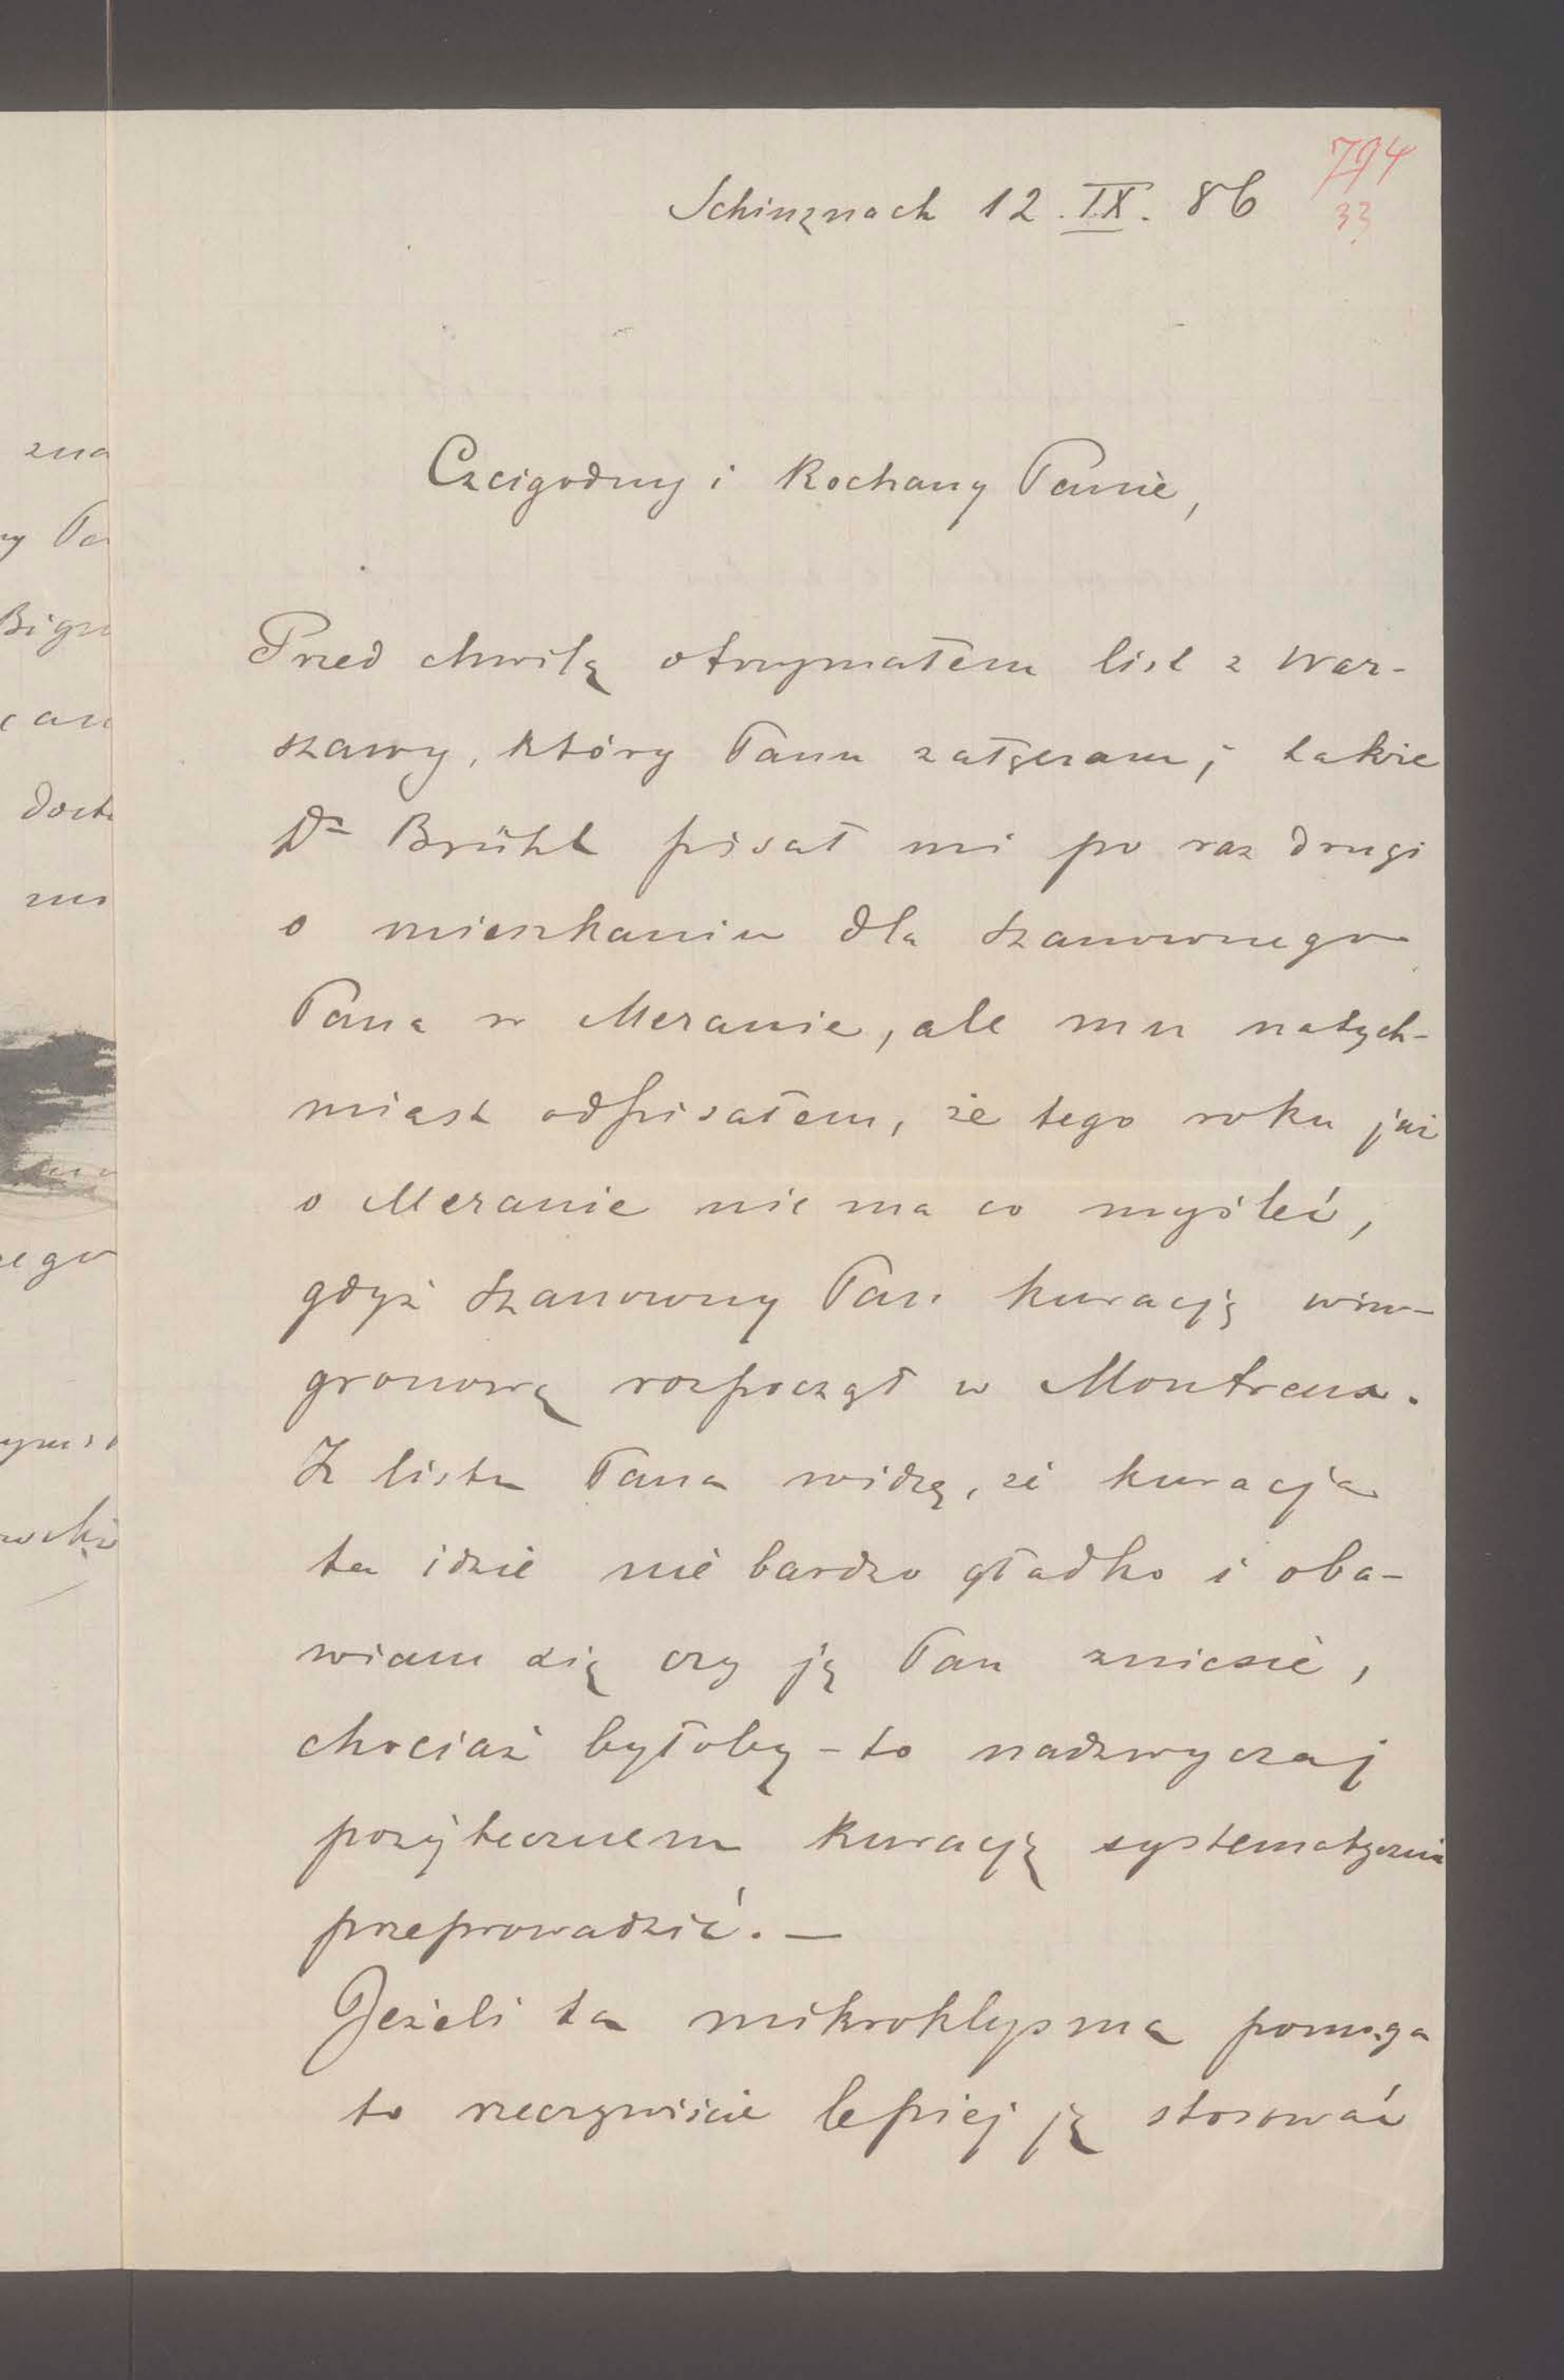 794
Schinznach 12. IX. 86
33
Czcigodny i Kochany Panie,
Przed chwilą otrzymałem list z War-
szawy, który Panu załączam; także
Dr Brühl pisał mi po raz drugi
o mieszkaniu dla Szanownego
Pana w Meranie, ale mu natych-
miast odpisałem, że tego roku już
o Meranie nie ma co myśleć,
gdyż Szanowny Pan kuracją wino-
gronową rozpoczął w Montreux.
Z listu Pana widzę, że kuracja
ta idzie nie bardzo gładko i oba-
wiam się czy ją Pan zniesie,
chociaż byłoby-to nadzwyczaj
pożytecznem kuracją systematycznie
przeprowadzić. —
Jeżeli ta mikroklysma pomaga
to rzeczywiście lepiej ją stosować